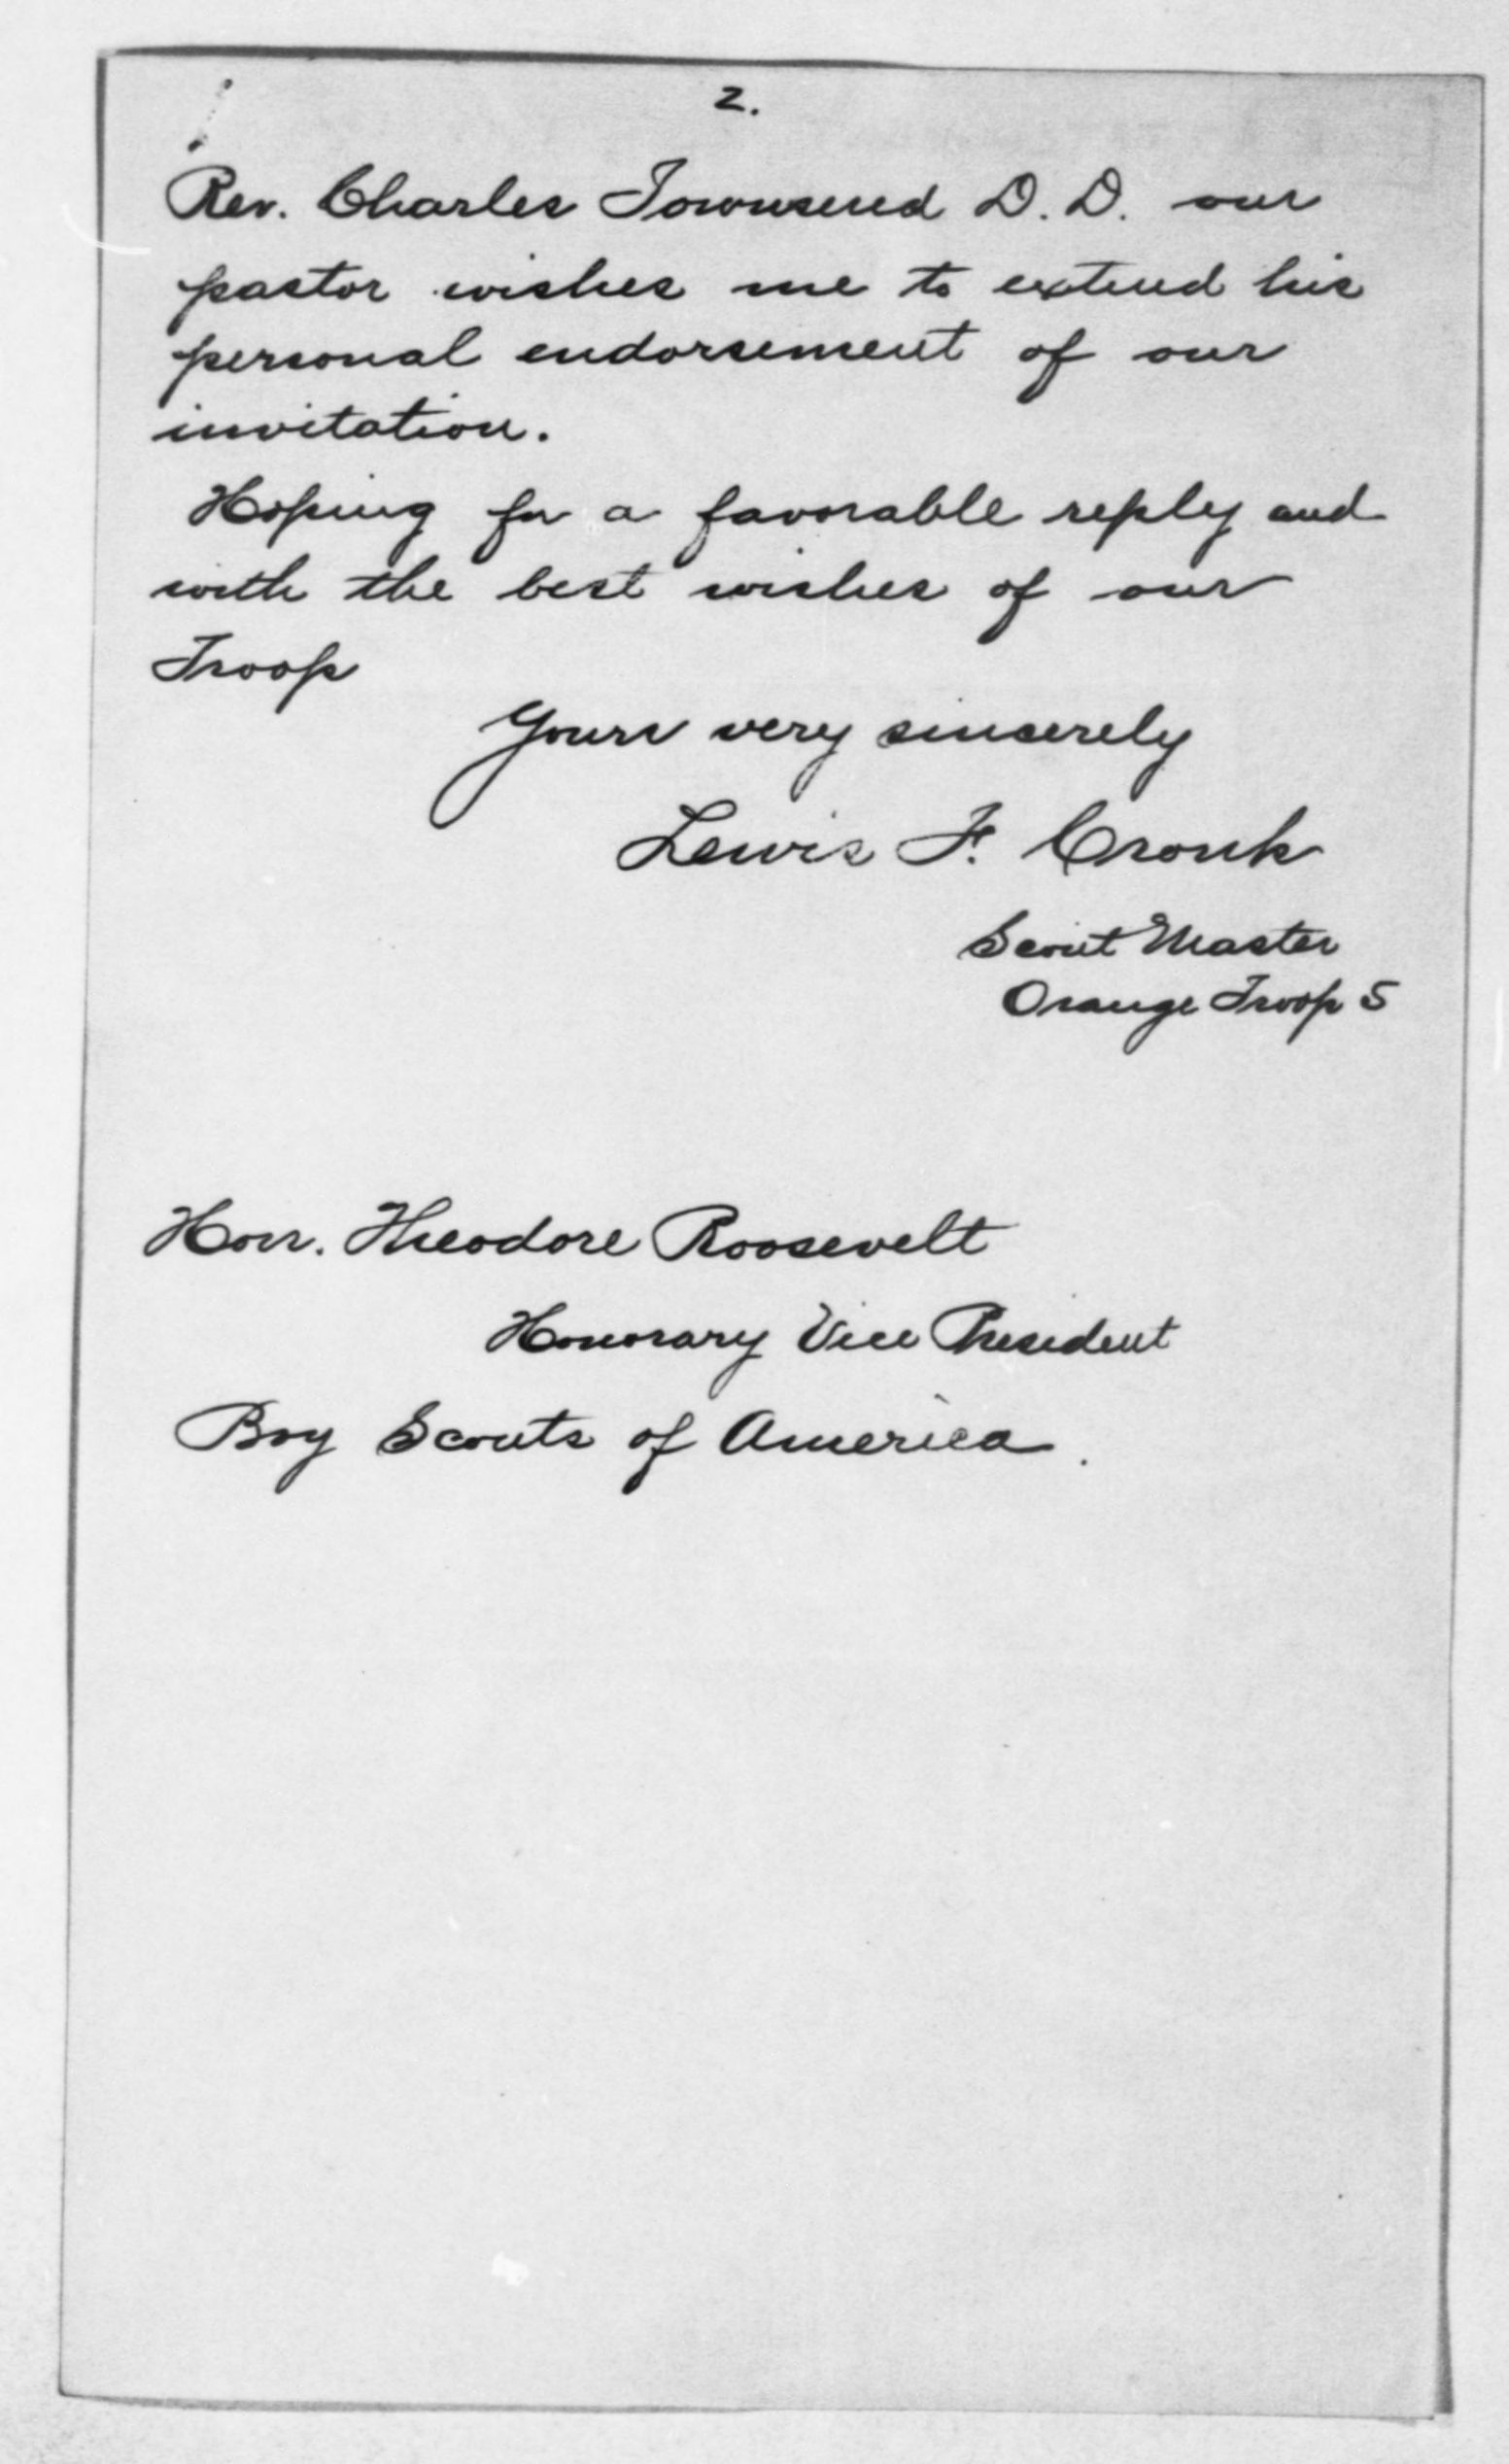 2.
Rev. Charles Townsend D. D. our
pastor wishes me to extend his
personal endorsement of our
invitation.
Hoping for a favorable reply and
with the best wishes of our
Troop
Yours very sincerely
Lewis F. Cronk
Scout Master
Orange Troop 5
Hon. Theodore Roosevelt
Honorary Vice President
Boy Scouts of America.